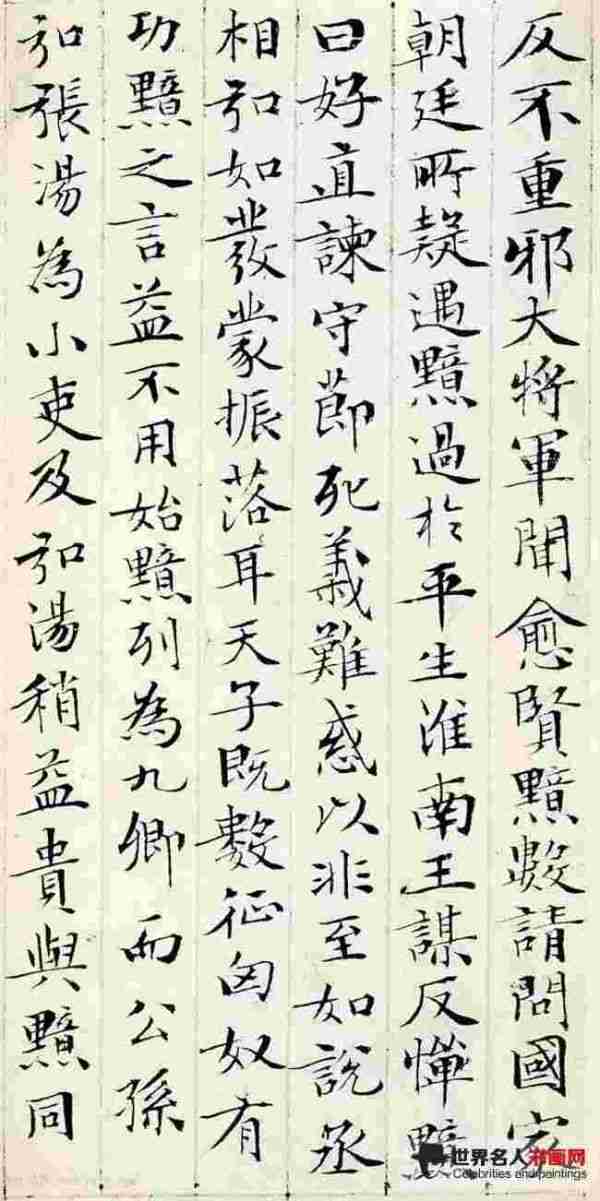 反不重邪大將軍聞愈賢黯數請問國家
朝廷所疑遇黯過於平生淮南王謀反憚黯
曰好直諫守節死義難惑以非至如說丞
相弘如發蒙振落耳天子既數征匈奴有
功黯之言益不用始黯列為九卿而公孫
弘張湯為小吏及弘湯稍益貴與黯同
世界名人书画网
Celebrities and paintings